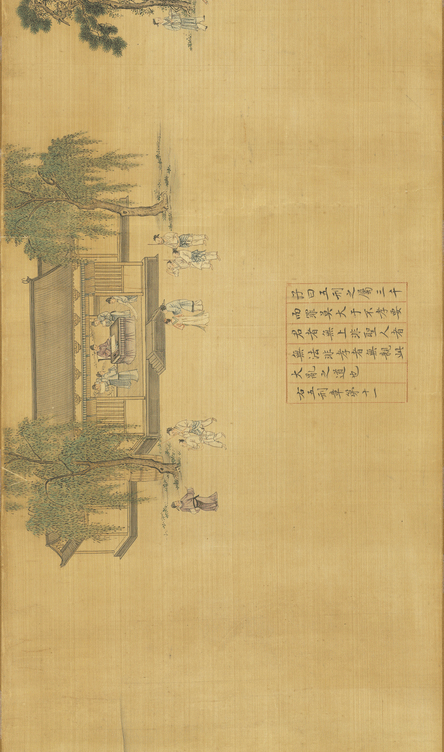 子曰五刑之屬三千
而罪莫大于不孝要
君者無上非聖人者
無法非孝者無親此
大亂之道也
右五刑章第十一